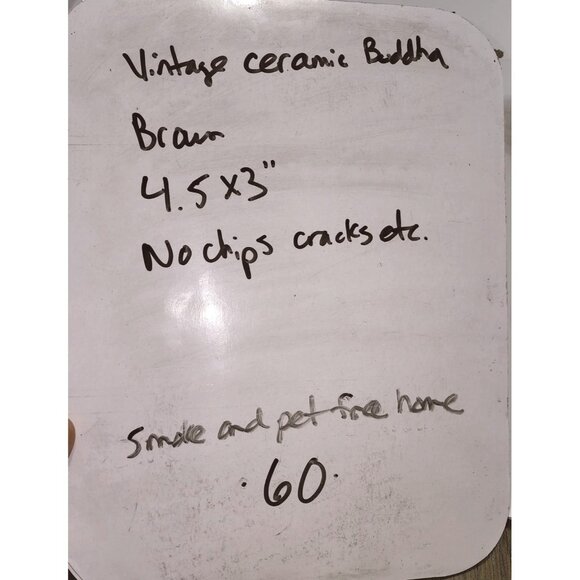 Vintage ceramic Buddha
Brown
4.5x3"
No chips cracks etc.
Smoke and pet free home
·60·